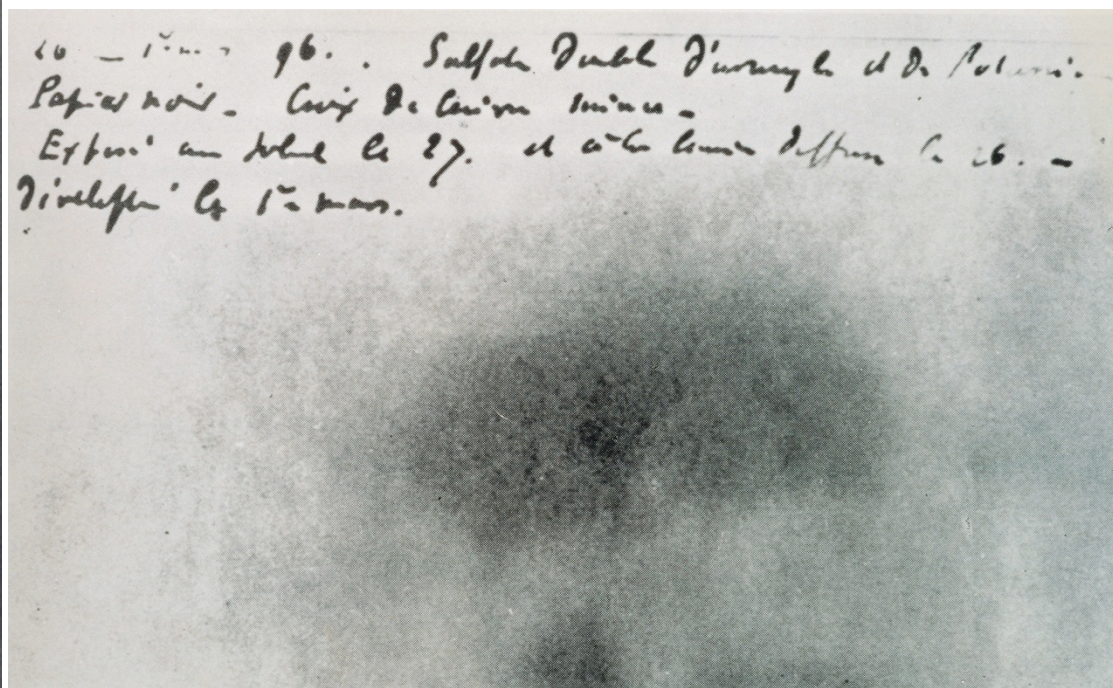 96. Sulfate Double d'uranyle et de Potassi.
Papier noir - Croix de Cuivre mince -
Exposé au soleil le 27. et à la lumière diffuse le 26. -
Développé le 1er mars.